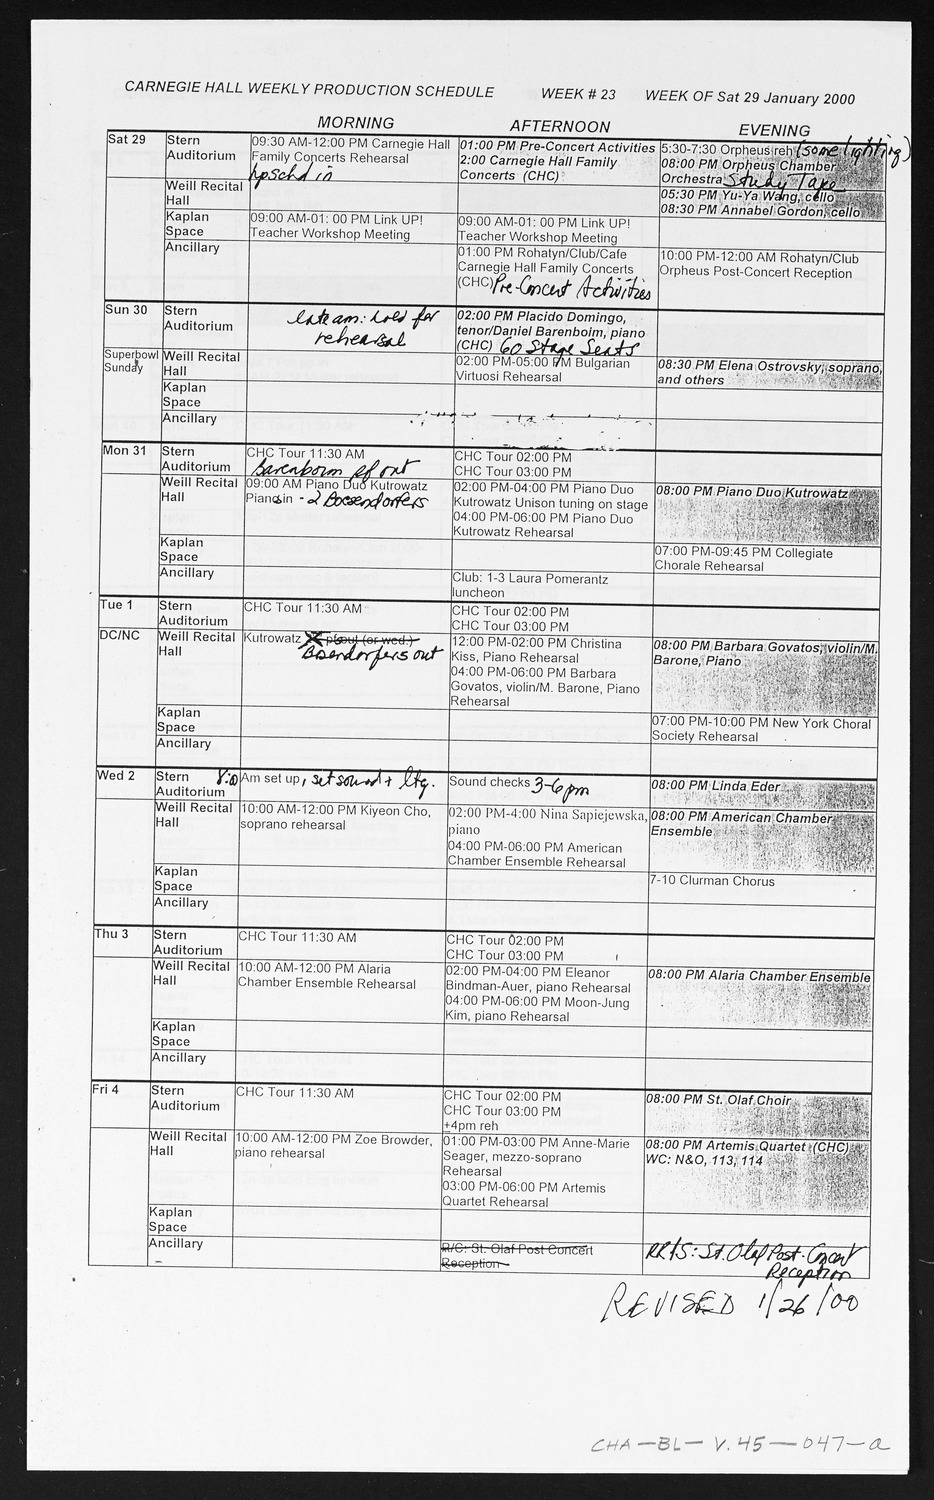 CARNEGIE HALL WEEKLY PRODUCTION SCHEDULE WEEK # 23 WEEK OF Sat 29 January 2000
MORNING AFTERNOON EVENING
Sat 29
Stern
Auditorium
09:30 AM-12:00 PM Carnegie Hall
Family Concerts Rehearsal
hpschd in
01:00 PM Pre-Concert Activities
2:00 Carnegie Hall Family
Concerts (CHC)
5:30-7:30 Orpheus reh (some lighting)
08:00 PM Orpheus Chamber
Orchestra Study Tape
Weill Recital
Hall
05:30 PM Yu-Ya Wang, cello
08:30 PM Annabel Gordon, cello
Kaplan
Space
09:00 AM-01: 00 PM Link UP!
Teacher Workshop Meeting
09:00 AM-01: 00 PM Link UP!
Teacher Workshop Meeting
Ancillary
01:00 PM Rohatyn/Club/Cafe
Carnegie Hall Family Concerts
(CHC) Pre-Concert Activities
10:00 PM-12:00 AM Rohatyn/Club
Orpheus Post-Concert Reception
Sun 30
Stern
Auditorium
late am: hold for
rehearsal
02:00 PM Placido Domingo,
tenor/Daniel Barenboim, piano
(CHC) 60 Stage Seats
Superbowl
Sunday
Weill Recital
Hall
02:00 PM-05:00 PM Bulgarian
Virtuosi Rehearsal
08:30 PM Elena Ostrovsky, soprano,
and others
Kaplan
Space
Ancillary
Mon 31
Stern
Auditorium
CHC Tour 11:30 AM
Barenboim pf out
CHC Tour 02:00 PM
CHC Tour 03:00 PM
Weill Recital
Hall
09:00 AM Piano Duo Kutrowatz
Pianos in - 2 Bosendorfers
02:00 PM-04:00 PM Piano Duo
Kutrowatz Unison tuning on stage
04:00 PM-06:00 PM Piano Duo
Kutrowatz Rehearsal
08:00 PM Piano Duo Kutrowatz
Kaplan
Space
07:00 PM-09:45 PM Collegiate
Chorale Rehearsal
Ancillary
Club: 1-3 Laura Pomerantz
luncheon
Tue 1
Stern
Auditorium
CHC Tour 11:30 AM
CHC Tour 02:00 PM
CHC Tour 03:00 PM
DC/NC
Weill Recital
Hall
Kutrowatz pf out (or wed.)
Bosendorfers out
12:00 PM-02:00 PM Christina
Kiss, Piano Rehearsal
04:00 PM-06:00 PM Barbara
Govatos, violin/M. Barone, Piano
Rehearsal
08:00 PM Barbara Govatos, violin/M.
Barone, Piano
Kaplan
Space
07:00 PM-10:00 PM New York Choral
Society Rehearsal
Ancillary
Wed 2
Stern
Auditorium
8:00 Am set up, set sound + ltg.
Sound checks 3-6 pm
08:00 PM Linda Eder
Weill Recital
Hall
10:00 AM-12:00 PM Kiyeon Cho,
soprano rehearsal
02:00 PM-4:00 Nina Sapiejewska,
piano
04:00 PM-06:00 PM American
Chamber Ensemble Rehearsal
08:00 PM American Chamber
Ensemble
Kaplan
Space
7-10 Clurman Chorus
Ancillary
Thu 3
Stern
Auditorium
CHC Tour 11:30 AM
CHC Tour 02:00 PM
CHC Tour 03:00 PM
Weill Recital
Hall
10:00 AM-12:00 PM Alaria
Chamber Ensemble Rehearsal
02:00 PM-04:00 PM Eleanor
Bindman-Auer, piano Rehearsal
04:00 PM-06:00 PM Moon-Jung
Kim, piano Rehearsal
08:00 PM Alaria Chamber Ensemble
Kaplan
Space
Ancillary
Fri 4
Stern
Auditorium
CHC Tour 11:30 AM
CHC Tour 02:00 PM
CHC Tour 03:00 PM
+4pm reh
08:00 PM St. Olaf Choir
Weill Recital
Hall
10:00 AM-12:00 PM Zoe Browder,
piano rehearsal
01:00 PM-03:00 PM Anne-Marie
Seager, mezzo-soprano
Rehearsal
03:00 PM-06:00 PM Artemis
Quartet Rehearsal
08:00 PM Artemis Quartet (CHC)
WC: N&O, 113, 114
Kaplan
Space
Ancillary
R/C: St. Olaf Post Concert
Reception
RR/S: St. Olaf Post-Concert
Reception
REVISED 1/26/00
CHA-BL-V.45-047-a